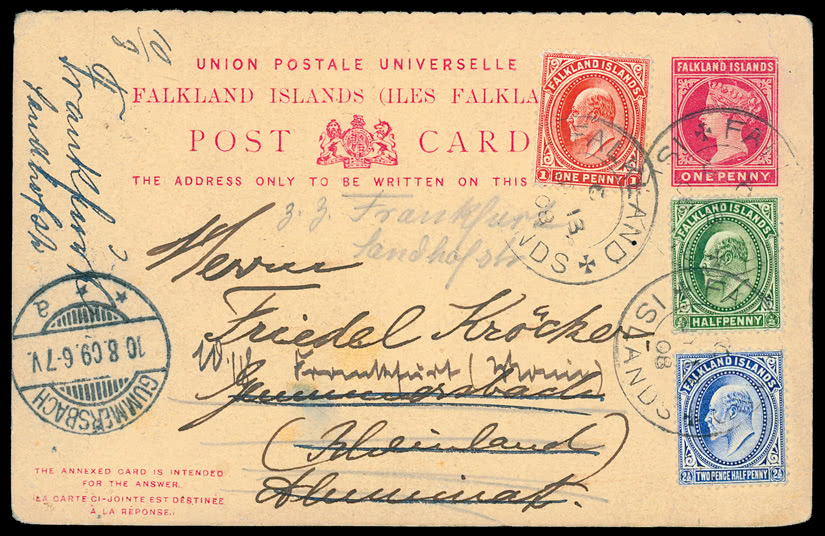 UNION POSTALE UNIVERSELLE
FALKLAND ISLANDS (ILES FALKLA
POST CARD
THE ADDRESS ONLY TO BE WRITTEN ON THIS
FALKLAND ISLANDS
ONE PENNY
FALKLAND ISLANDS
1 ONE PENNY 1
FALKLAND ISLANDS
HALFPENNY
FALKLAND ISLANDS
2½ TWO PENCE HALFPENNY 2½
FALKLAND
13
08
08
10/8
Frankfurt
z. Z. Frankfurt
Landhofstr
Herrn
Friedel Kröcker
Frankfurt (Main)
Gummersbach
(Rheinland)
Alumnat.
10.8.09.6-7V.
GUMMERSBACH
THE ANNEXED CARD IS INTENDED
FOR THE ANSWER.
(LA CARTE CI-JOINTE EST DESTINÉE
À LA RÉPONSE.)